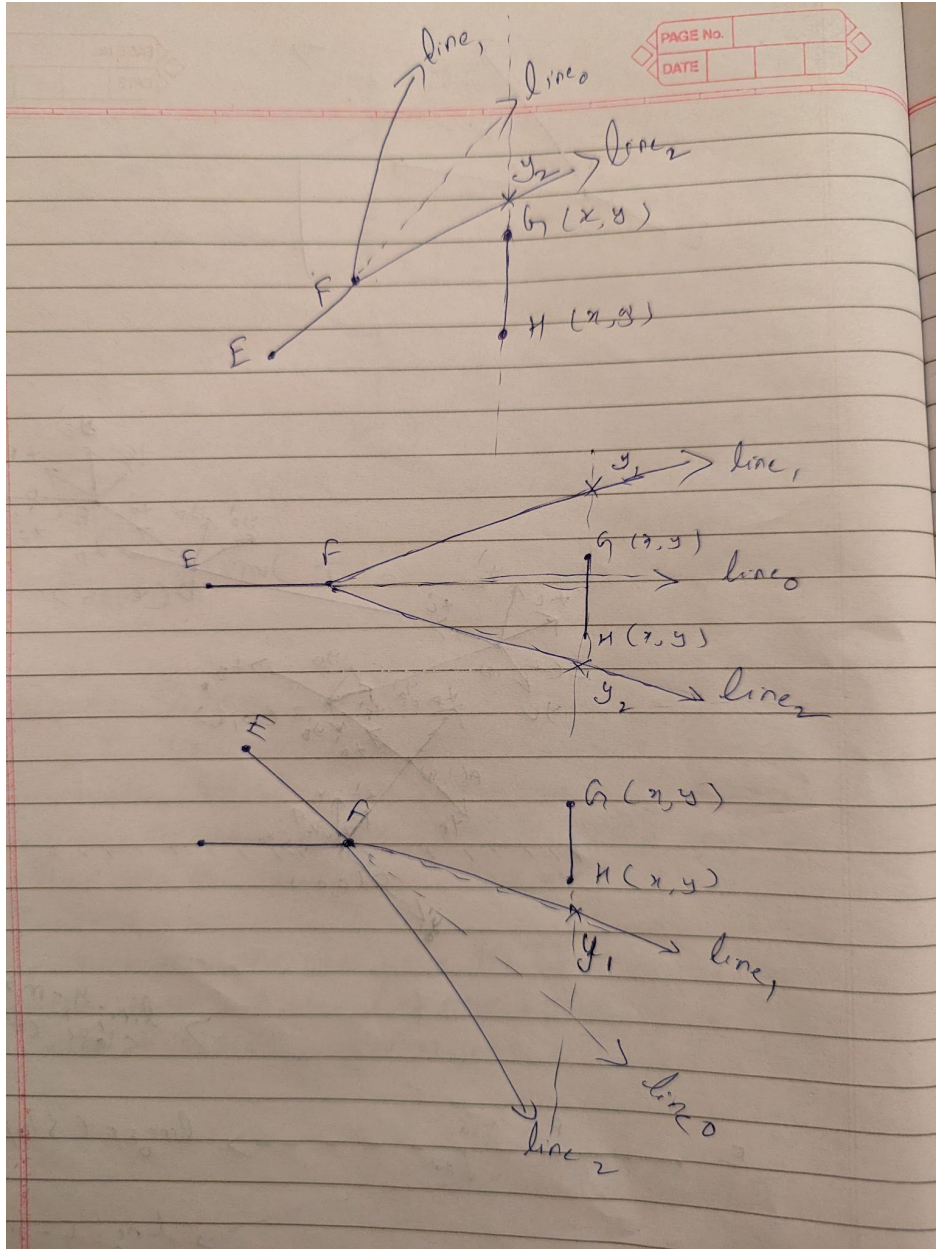 PAGE No.
DATE
line₁
line₀
line₂
y₂
G (x, y)
F
H (x, y)
E
y₁
line₁
E
F
G (x, y)
line₀
H (x, y)
y₂
line₂
G (x, y)
H (x, y)
y₁
line₁
line₀
line₂